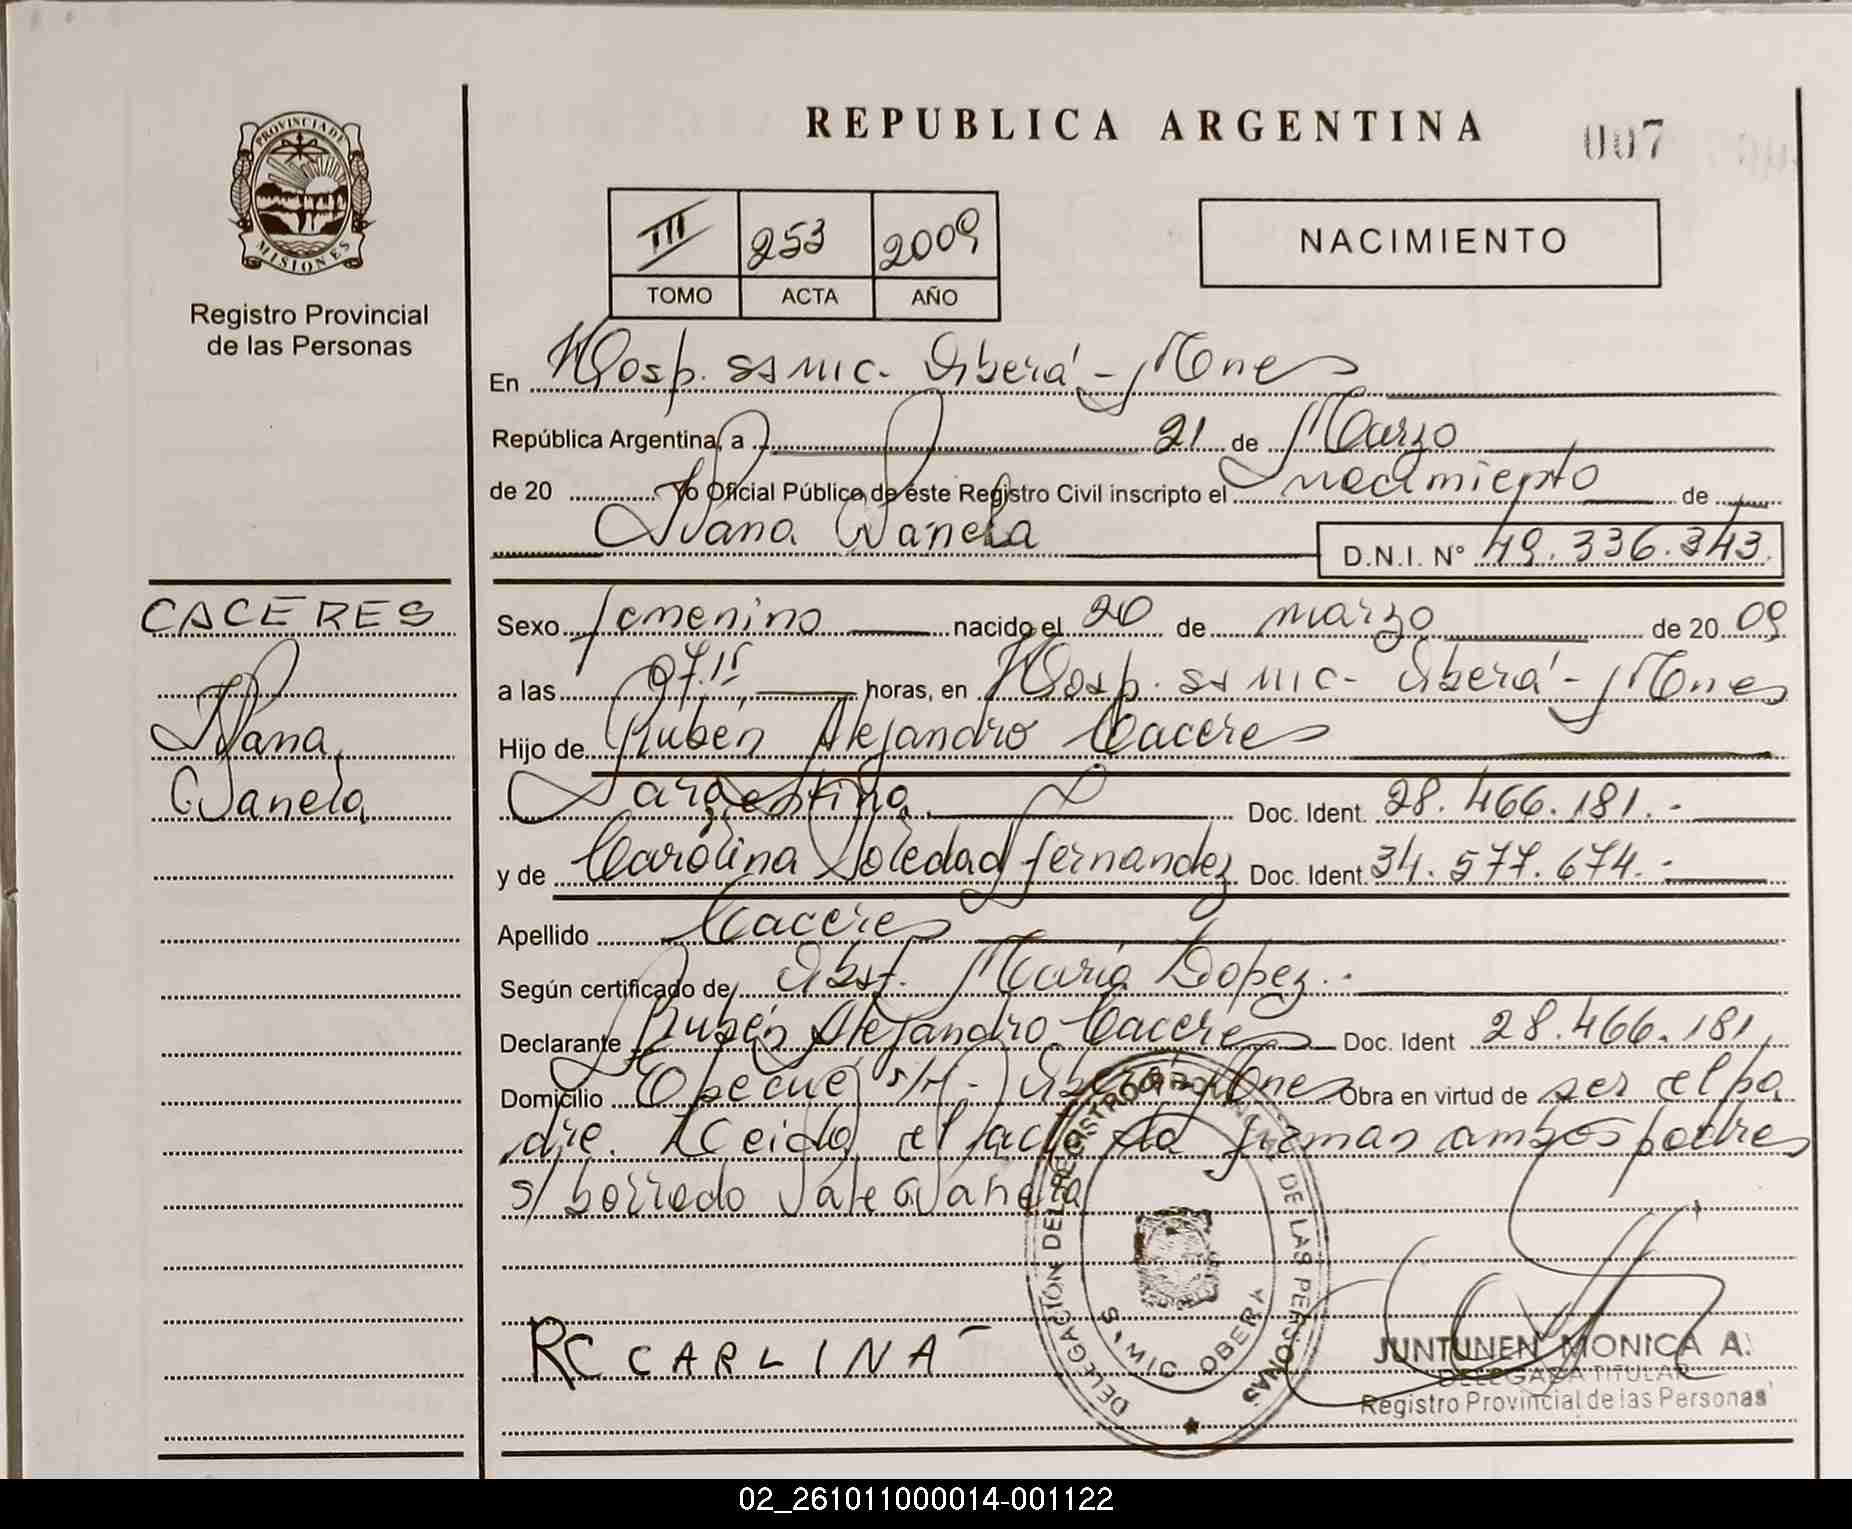 REPUBLICA ARGENTINA
007
PROVINCIA DE
MISIONES
Registro Provincial
de las Personas
III 253 2009
TOMO ACTA AÑO
NACIMIENTO
En Hosp. SSMIC- Oberá - Mnes
República Argentina, a 21 de Marzo
de 20 Yo Oficial Público de éste Registro Civil inscripto el nacimiento de
Ivana
D.N.I. N° 49.336.343.
CACERES
Ivana
Sexo femenino nacido el 20 de marzo de 20 09
a las 07.15 horas, en Hosp. SSMIC- Oberá - Mnes
Hijo de Rubén Alejandro Caceres
argentino Doc. Ident. 28.466.181.-
y de Carolina Soledad Fernandez Doc. Ident. 34.577.674.-
Apellido Caceres
Según certificado de Obst. María Lopez.-
Declarante Rubén Alejandro Caceres Doc. Ident 28.466.181
Domicilio s/n - Oberá - Mnes Obra en virtud de ser el pa
dre. Leida el acta la firman ambos padres
s/ borrado Vale
RC CARLINA
DELEGACIÓN DEL REGISTRO PROVINCIAL DE LAS PERSONAS
OBERA
JUNTUNEN MONICA A.
DELEGADA TITULAR
Registro Provincial de las Personas
02_261011000014-001122